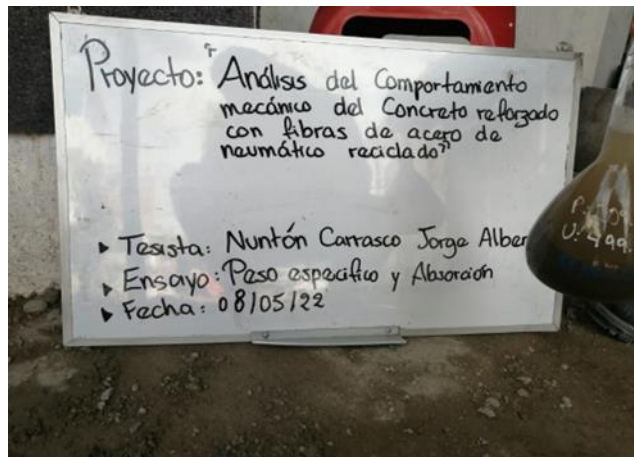 Proyecto: "Análisis del Comportamiento
mecánico del Concreto reforzado
con fibras de acero de
neumático reciclado"
▸ Tesista: Nuntón Carrasco Jorge Alber
▸ Ensayo: Peso especifico y Absorción
▸ Fecha: 08/05/22
V: 499.